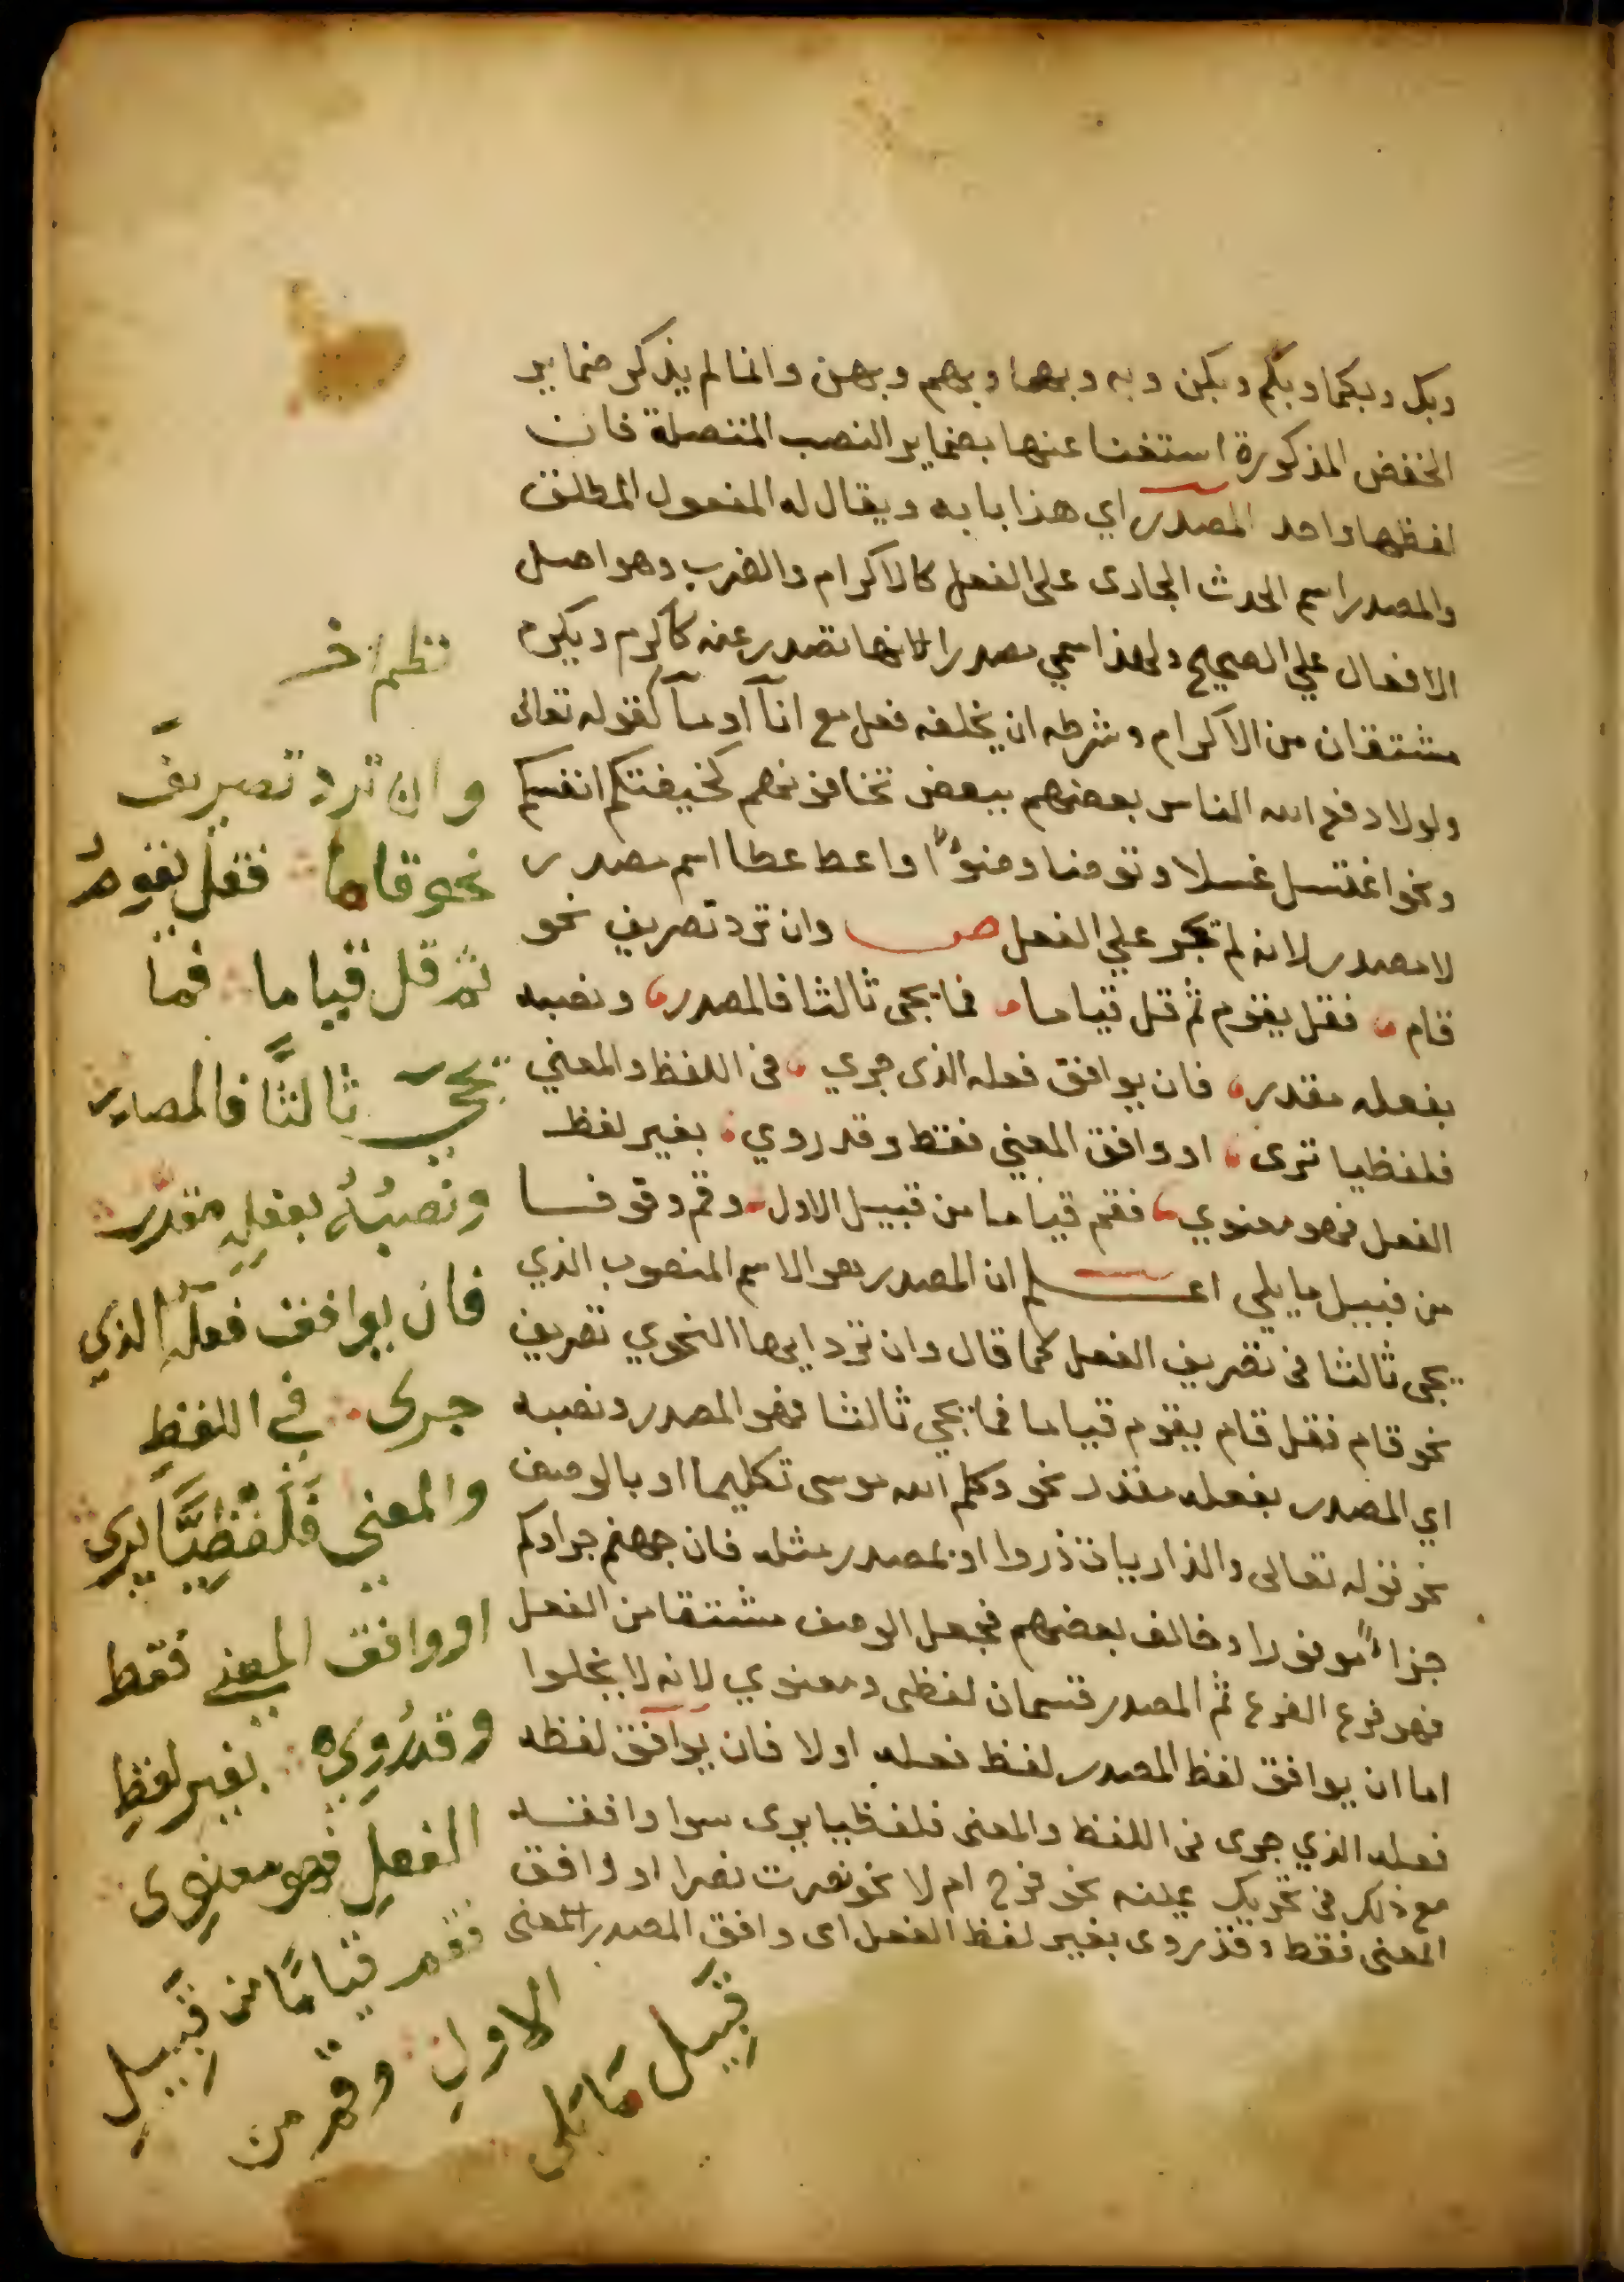 وبك وبكما وبكم وبكن وبه وبهما وبهم وبهن وانما لم يذكر ضماير
الخفض المذكورة استغنا عنها بضماير النصب المتصلة فان
لفظها واحد المصدر اي هذا بابه ويقال له المفعول المطلق
والمصدر اسم الحدث الجارى على الفعل كالاكرام والضرب وهو اصل
الافعال علي الصحيح ولهذا سمي مصدرا لانها تصدر عنه كاكرم ويكرم
مشتقان من الاكرام وشرطه ان يخلفه فعل مع ان او ما كقوله تعالى
ولولا دفع الله الناس بعضهم ببعض تخافونهم كخيفتكم انفسكم
ونحو اغتسل غسلا وتوضا وضوءا واعط عطا اسم مصدر
لا مصدر لانه لم يجر علي الفعل ص وان ترد تصريف نحو
قام فقل يقوم ثم قل قياما فما يجى ثالثا فالمصدر ونصبه
بفعله مقدر فان يوافق فعله الذى جري فى اللفظ والمعني
فلفظيا ترى او وافق المعنى فقط وقد روي بغير لفظ
الفعل فهو معنوي فقم قياما من قبيل الاول وقم وقوفا
من قبيل ما يلي اعلم ان المصدر هو الاسم المنصوب الذي
يجى ثالثا فى تصريف الفعل كما قال وان ترد ايها النحوي تصريف
نحو قام فقل قام يقوم قياما فما يجي ثالثا فهو المصدر ونصبه
اي المصدر بفعله مقدر نحو وكلم الله موسى تكليما او بالوصف
نحو قوله تعالى والذاريات ذروا او بمصدر مثله فان جهنم جزاوكم
جزاء موفورا وخالف بعضهم فجعل الوصف مشتقا من الفعل
فهو فرع الفرع ثم المصدر قسمان لفظى ومعنوي لانه لا يخلوا
اما ان يوافق لفظ المصدر لفظ فعله اولا فان يوافق لفظه
فعله الذي جرى فى اللفظ والمعنى فلفظيا يرى سوا وافقه
مع ذلك فى تحريك عينه نحو فرح ام لا نحو نصرت نصرا او وافق
المعنى فقط وقد روى بغير لفظ الفعل اى وافق المصدر المعنى
نظم اخر
وان ترد تصريف
نحو قاما فقل يقوم
ثم قل قياما فما
يجي ثالثا فالمصدر
ونصبه بفعله مقدر
فان يوافق فعله الذي
جرى في اللفظ
والمعني فلفظيا يرى
او وافق المعني فقط
وقد روي بغير لفظ
الفعل فهو معنوى
فقم قياما من قبيل
الاول وقم من
قبيل ما يلى